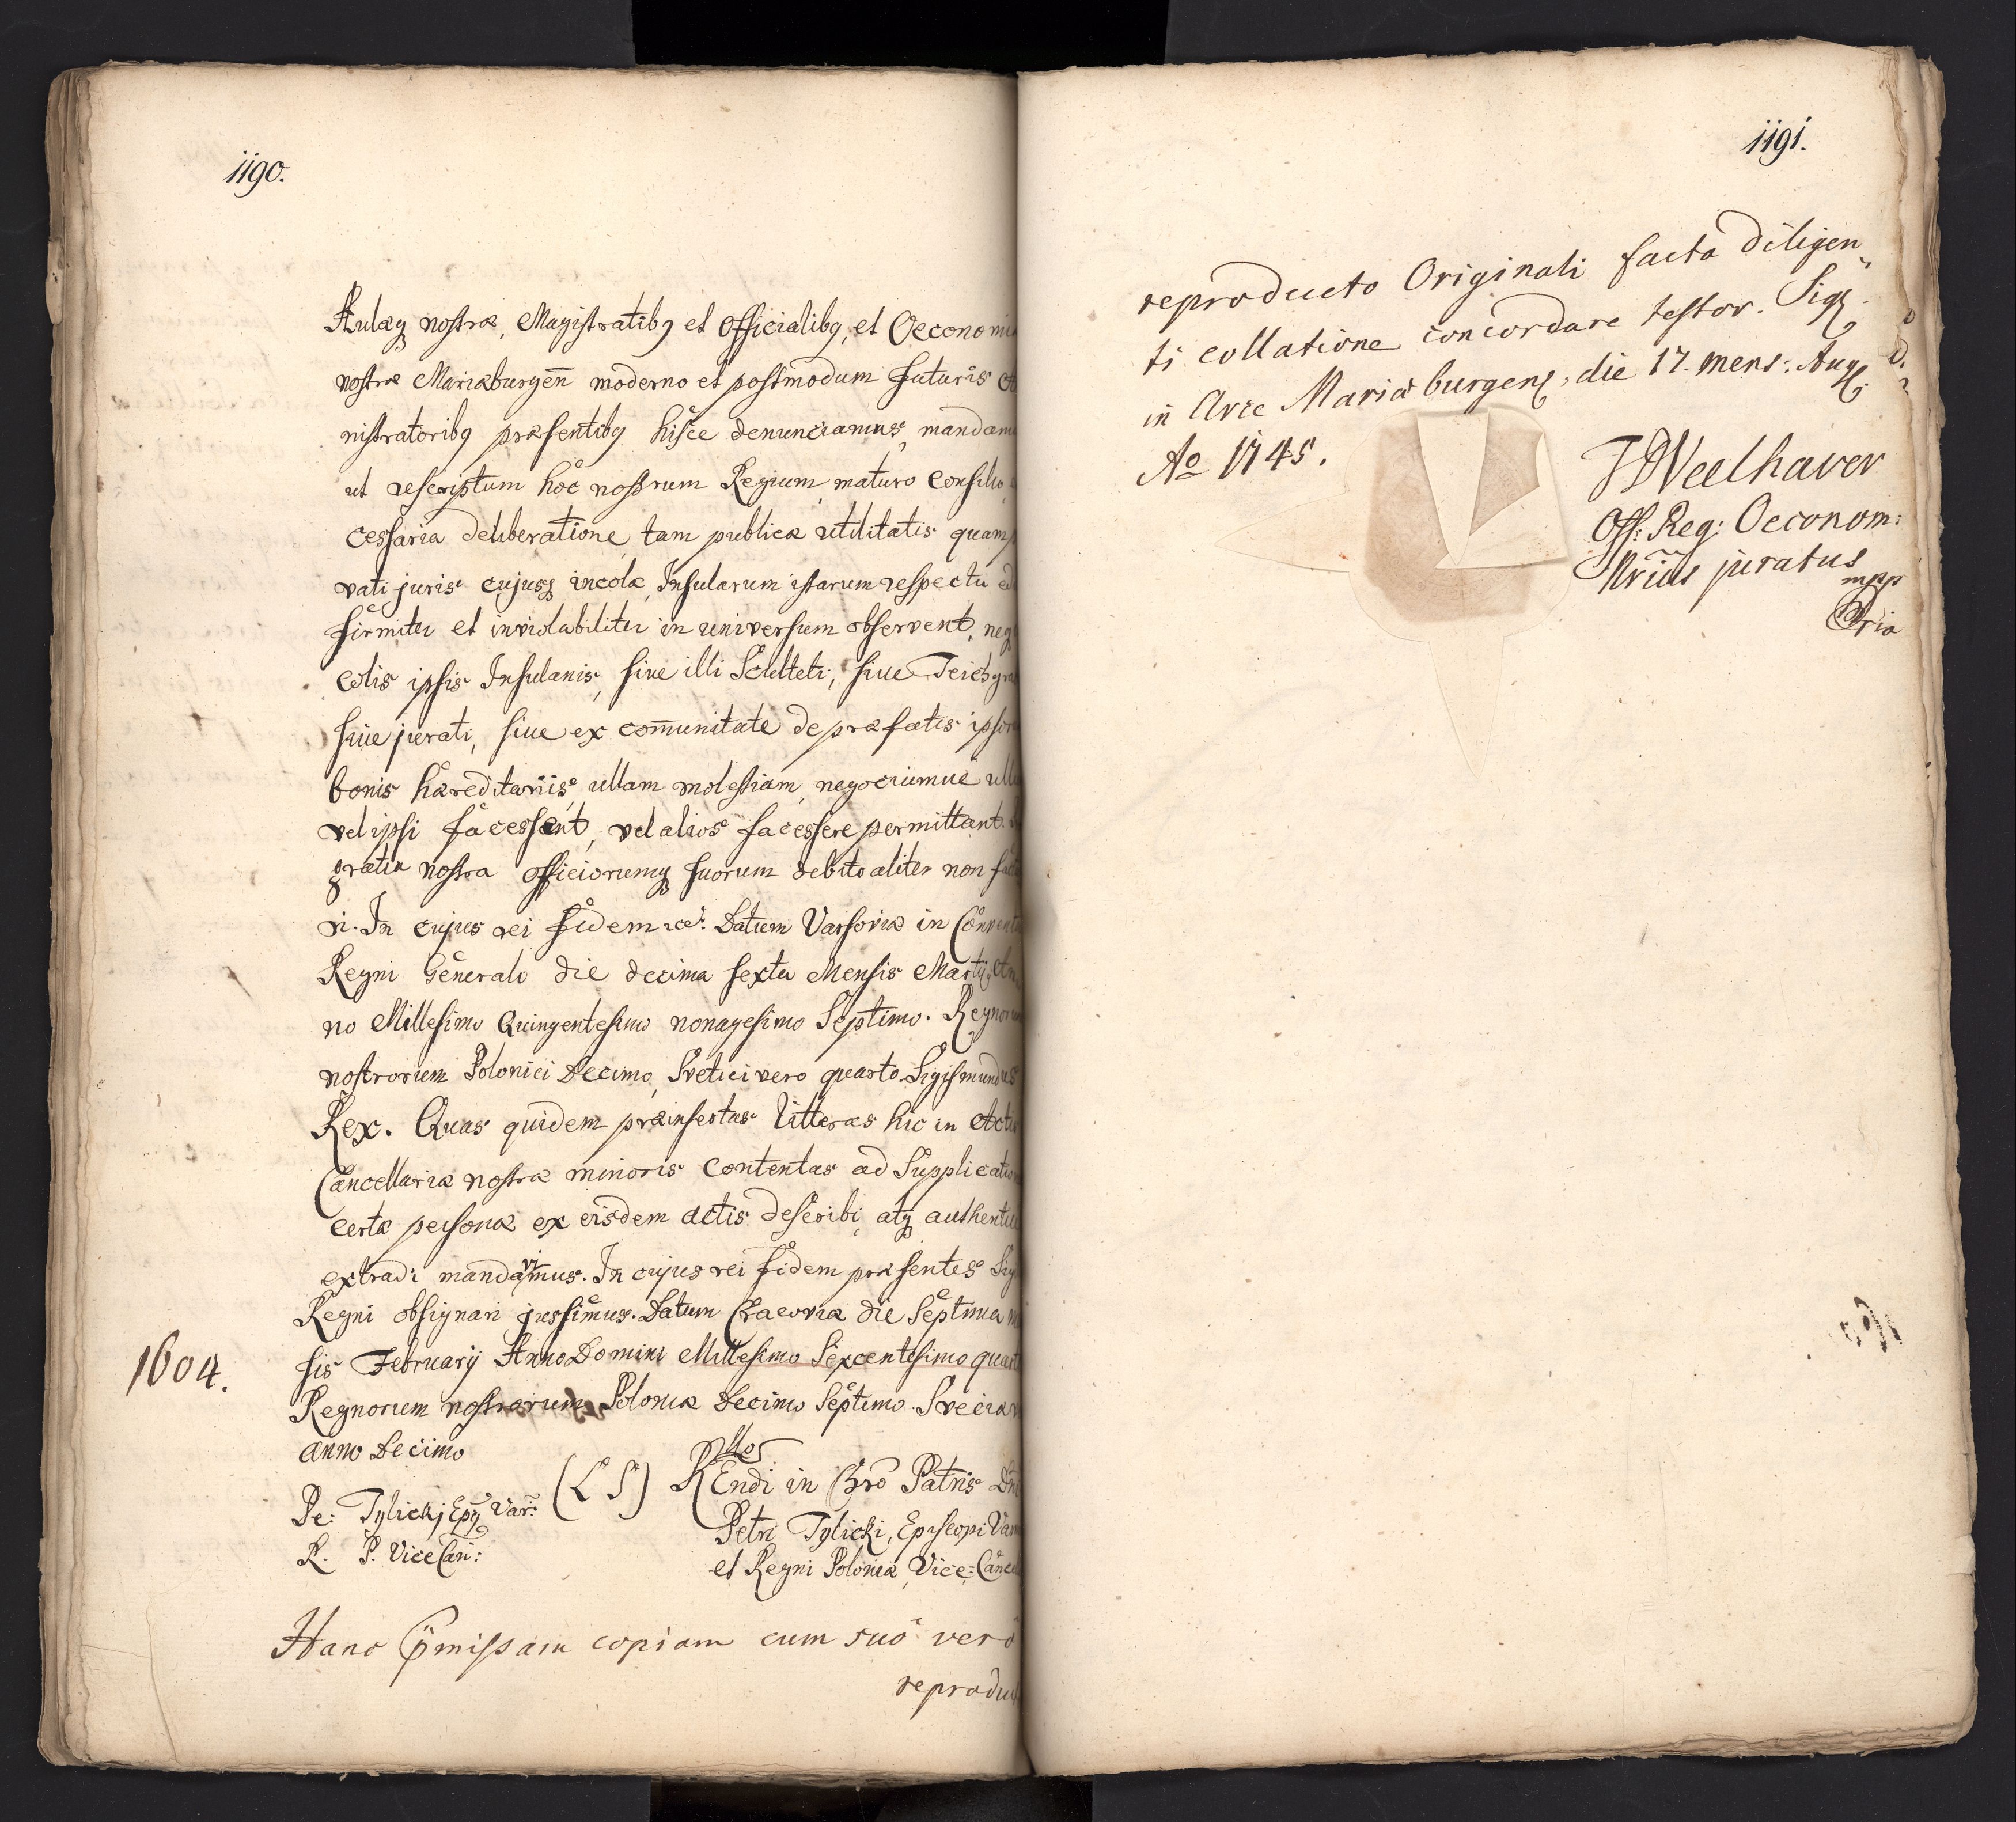 1190.
Aulæq nostræ, Magistratibq et Officialibq, et Oecono
nostræ Mariæburgen̄ moderno et postmodum futuris
nistratoribq præsentibq hisce denunciamus, mandam
ut rescriptum hoc nostrum Regium, maturo Consilio,
cessaria deliberatione, tam publicæ utilitatis quam
vati juris cujusq incolæ, Insularum istarum respectu
firmiter et inviolabiliter in universum observent, neq
colis ipsis Insulanis, sive illi Sculteti, sive Teichgra
sive jurati, sive ex com̄unitate de præfatis ipsor
bonis hæreditariis, ullam molestiam, negociumve ull
vel ipsi facessant, vel alios facessere permittant.
gratia nostra officiorumq suorum debito aliter non
ri. In cujus rei fidem &c. Datum Varsoviæ in Convent
Regni Generali die decima sexta Mensis Martij, An
no Millesimo Quingentesimo nonagesimo Septimo. Regnorum
nostrorum Polonici Decimo, Svetici vero quarto. Sigismundus
Rex. Quas quidem præinsertas litteras hic in Actis
Cancellariæ nostræ minoris contentas ad Supplication
certæ personæ ex eisdem actis describi, atq authentice
extradi mandavimus. In cujus rei fidem præsentes Sig
Regni obsignari jussimus. Datum Cracoviæ die Septima
1604.
sis February Anno Domini Millesimo Sexcentesimo quart
Regnorum nostrorum Poloniæ Decimo Septimo. Sveciæ
anno Decimo
Pe: Tylickj Epq Var:
R. P. Vice Can:
(L S)
REndi in Chro Patris Dni
Petri Tylicki, Episcopi Var
et Regni Poloniæ, Vice-Cance
Hanc p̄missam copiam cum suo vero
reproduc
1191.
reproducto Originali facta diligen„
ti collatione concordare testor. Sig.
in Arce Mariæburgens, die 17. mens: Aug:
Ao 1745.
JDWeelhaver
Off: Reg: Oeconom:
Nrius juratus
mpp